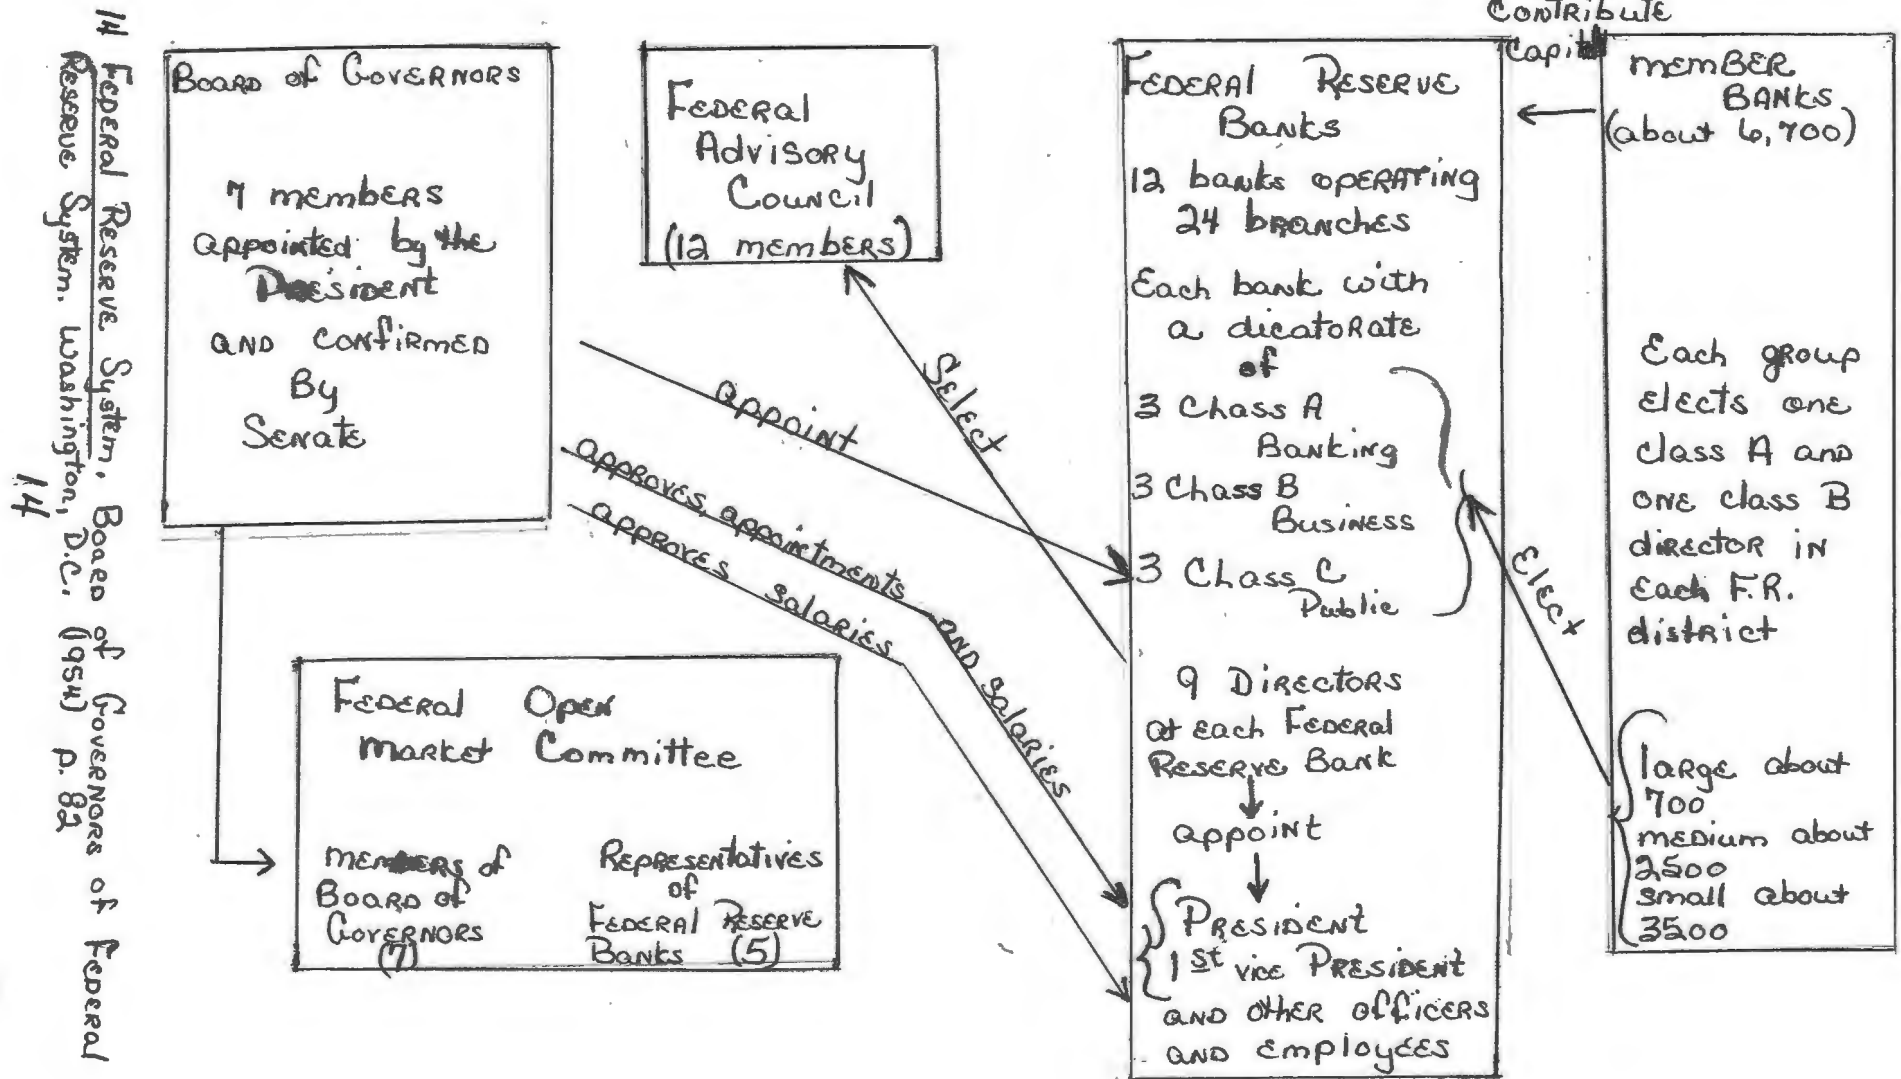 14 Federal Reserve System, Board of Governors of Federal
Reserve System. Washington, D.C. (1954) p. 82
14
Board of Governors
7 members
appointed by the
President
and confirmed
By
Senate
Federal
Advisory
Council
(12 members)
appoint
Select
approves, appointments and salaries
approves salaries
Federal Open
Market Committee
Members of
Board of
Governors
(7)
Representatives
of
Federal Reserve
Banks (5)
Federal Reserve
Banks
12 banks operating
24 branches
Each bank with
a dicatorate
of
3 Chass A
Banking
3 Chass B
Business
3 Chass C
Public
9 Directors
at each Federal
Reserve Bank
appoint
President
1st vice President
and other officers
and employees
Contribute
Capital
Elect
member
Banks
(about 6,700)
Each group
elects one
class A and
one class B
director in
each F.R.
district
large about
700
medium about
2500
small about
3500